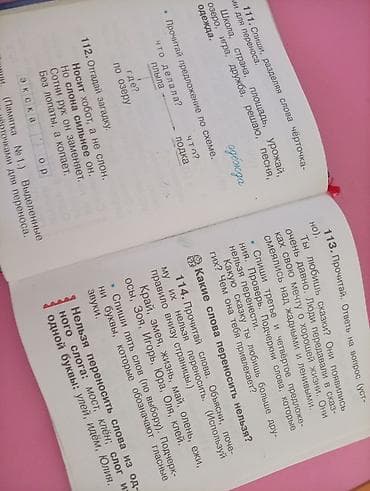 111. Спиши, разделяя слова чёрточка-
ми для переноса.
Школа, страна, площадь, урожай,
озеро, игра, дружба, решаю, песня,
одежда.
одежда
• Прочитай предложение по схеме.
что делала?
что?
плыла
лодка
где?
по озеру
112. Отгадай загадку.
Носит хобот, а не слон.
Но слона сильнее он.
Сотни рук он заменяет.
Без лопаты, а копает.
э к с к а
о р
(Памятка № 1.) Выделенные
чёрточками для переноса.
113. Прочитай. Ответь на вопрос (уст-
но).
Ты любишь сказки? Они появились
очень давно. Люди передавали в сказ-
ках свою мечту о хорошей жизни. Они
смеялись над жадными и ленивыми.
• Спиши третье и четвёртое предложе-
ния. Проверь. Подчеркни слова, которые
нельзя перенести.
Какую сказку ты любишь больше дру-
гих? Чем она тебя привлекает?
Какие слова переносить нельзя?
114. Прочитай слова. Объясни, поче-
му их нельзя переносить. (Используй
правило внизу страницы.)
Край, змея, жизнь, май, олень, ежи,
осы, Зоя, Игорь, Юра, Оля, клей.
• Спиши пять слов (по выбору). Подчерк-
ни буквы, которые обозначают гласные
звуки.
Нельзя переносить слова из од-
ного слога: мост, клён; слог из
одной буквы: улей, идём, Юлия.